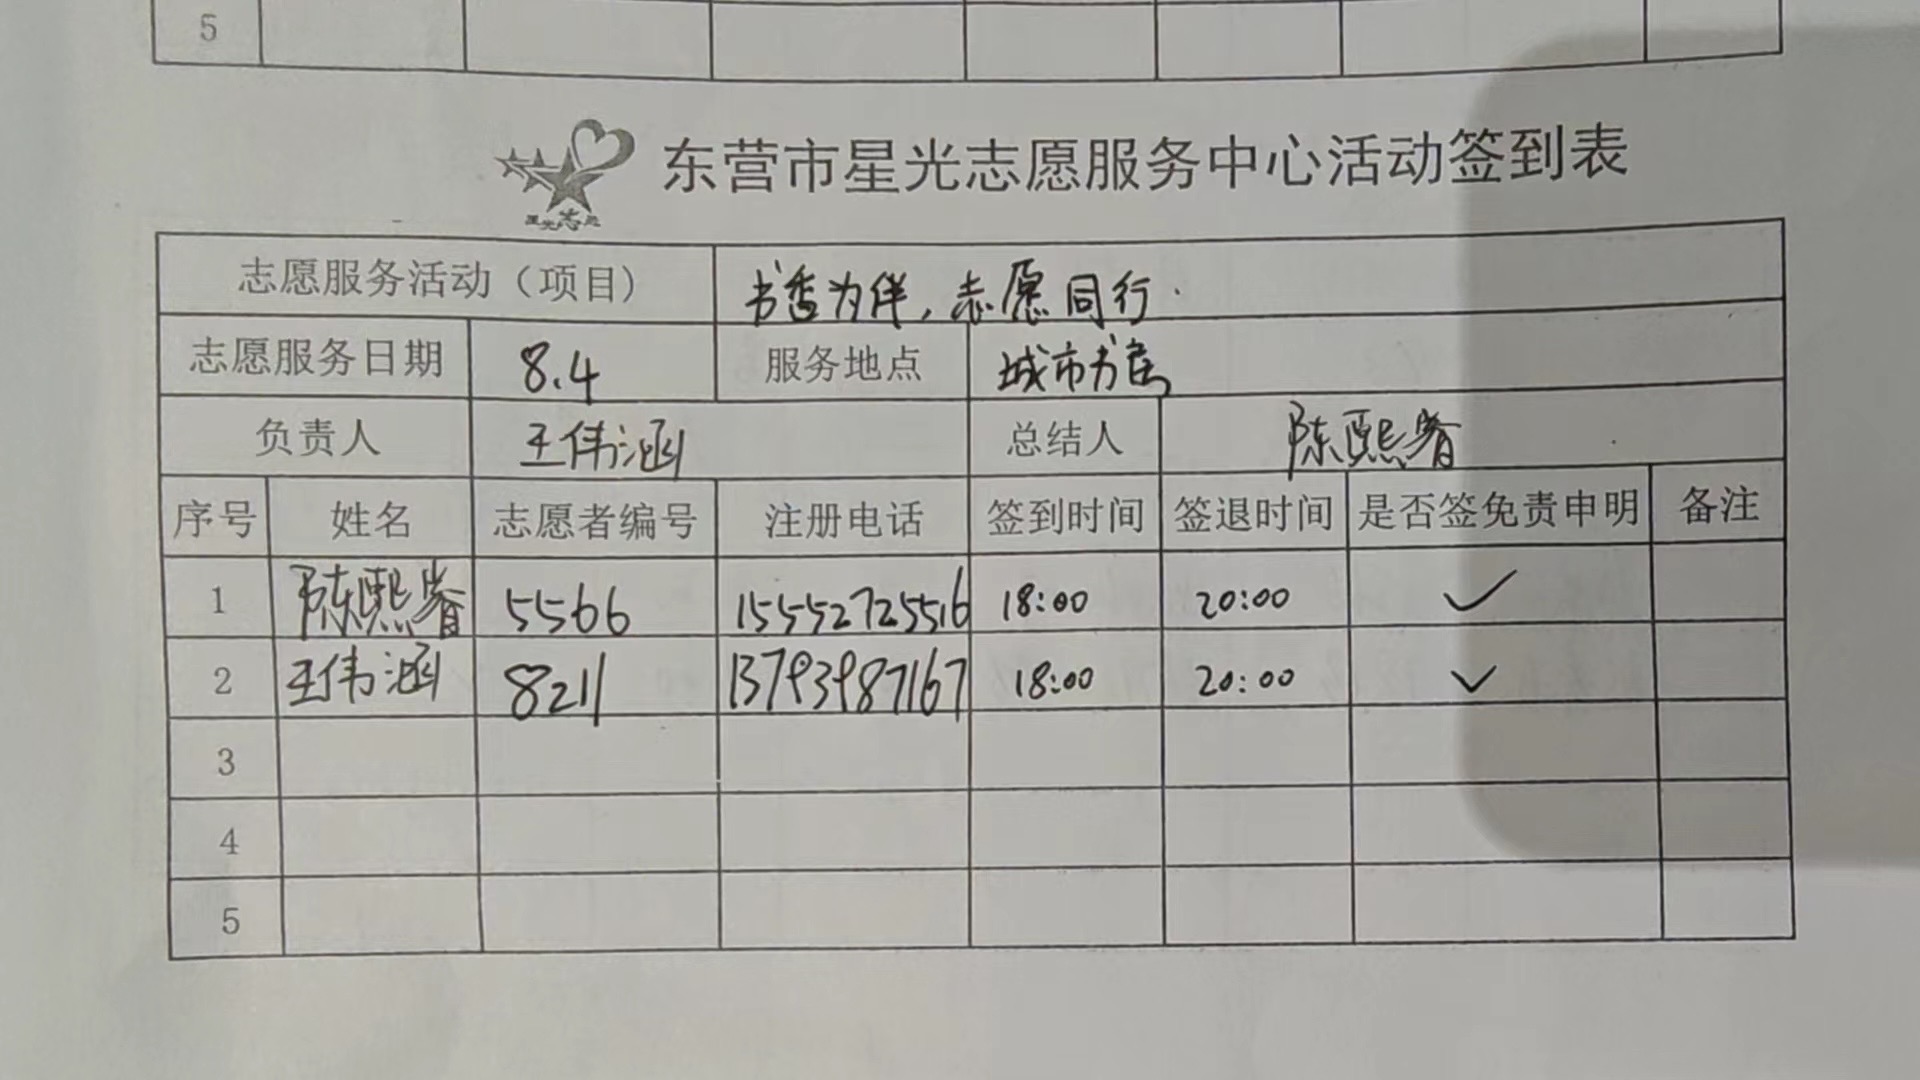 5
星光志愿
东营市星光志愿服务中心活动签到表
志愿服务活动（项目） 书香为伴，志愿同行.
志愿服务日期 8.4 服务地点 城市书房
负责人 王伟涵 总结人 陈熙睿
序号 姓名 志愿者编号 注册电话 签到时间 签退时间 是否签免责申明 备注
1 陈熙睿 5566 15552725516 18:00 20:00 ✓
2 王伟涵 8211 13793987167 18:00 20:00 ✓
3
4
5